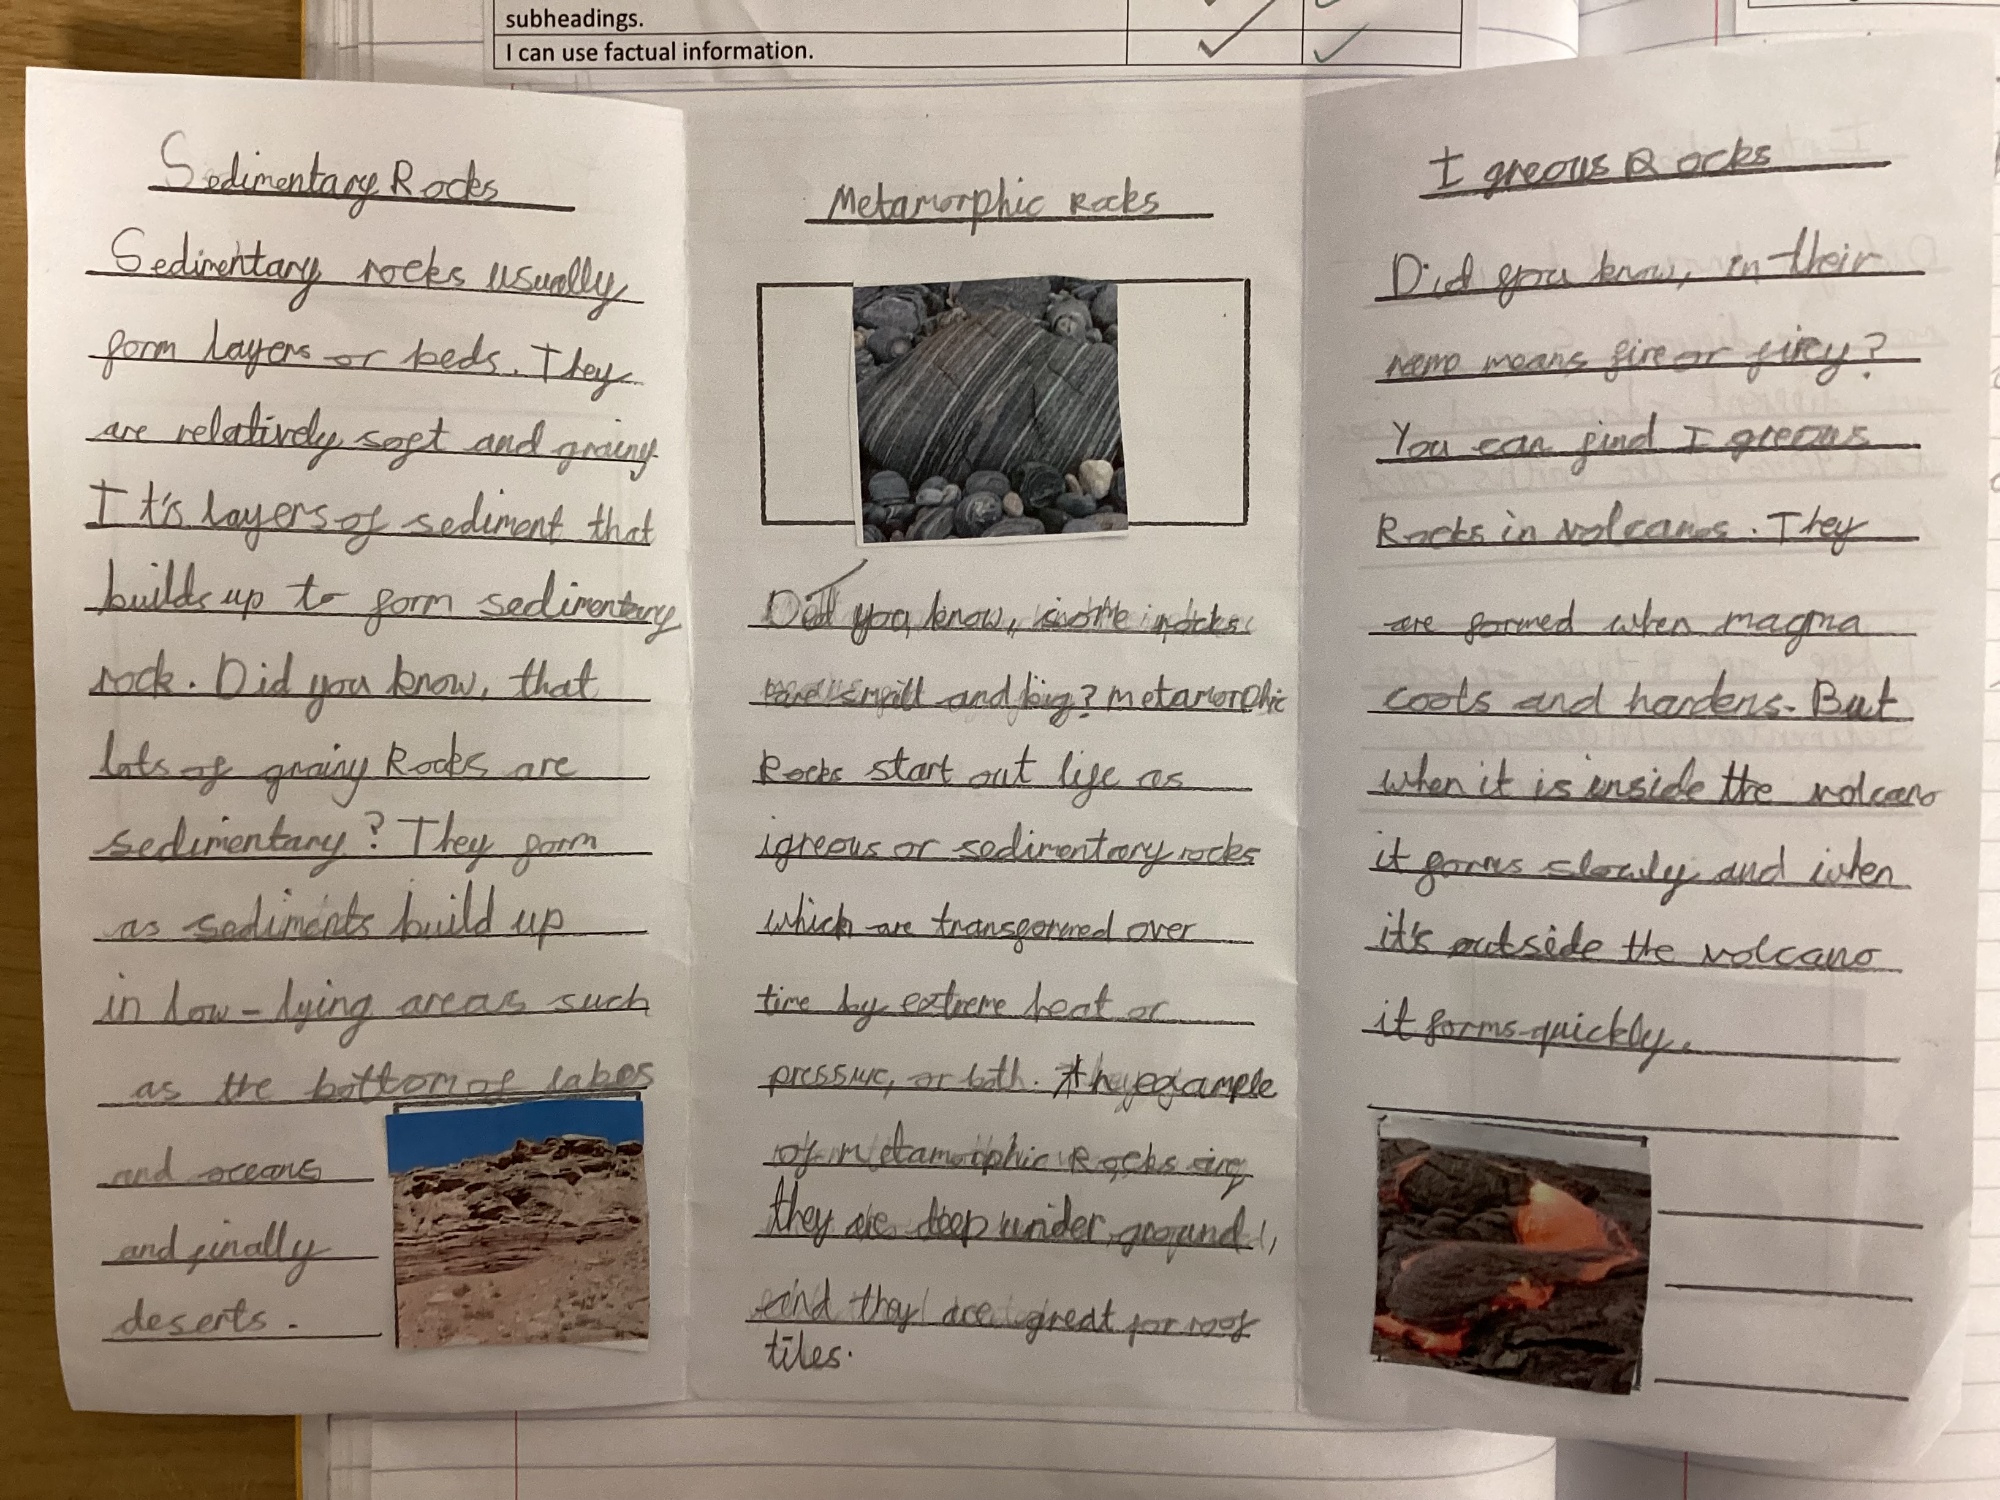 subheadings.
I can use factual information.
Sedimentary Rocks
Sedimentary rocks usually
form layers or beds. They
are relatively soft and grainy
It's layers of sediment that
builds up to form sedimentary
rock. Did you know, that
lots of grainy Rocks are
sedimentary? They form
as sediments build up
in low-lying areas such
as the bottom of lakes
and oceans
and finally
deserts.
Metamorphic Rocks
Did you know, some rocks
are small and big? metamorphic
Rocks start out life as
igreous or sedimentary rocks
which are transformed over
time by extreme heat or
pressure, or both. example
of metamorphic Rocks
they are deep under ground,
and they are great for roof
tiles.
Igreous Rocks
Did you know, in their
means fire or firey?
You can find Igreous
Rocks in volcanos. They
are formed when magma
cools and hardens. But
when it is inside the volcano
it forms slowly and when
it's outside the volcano
it forms quickly.